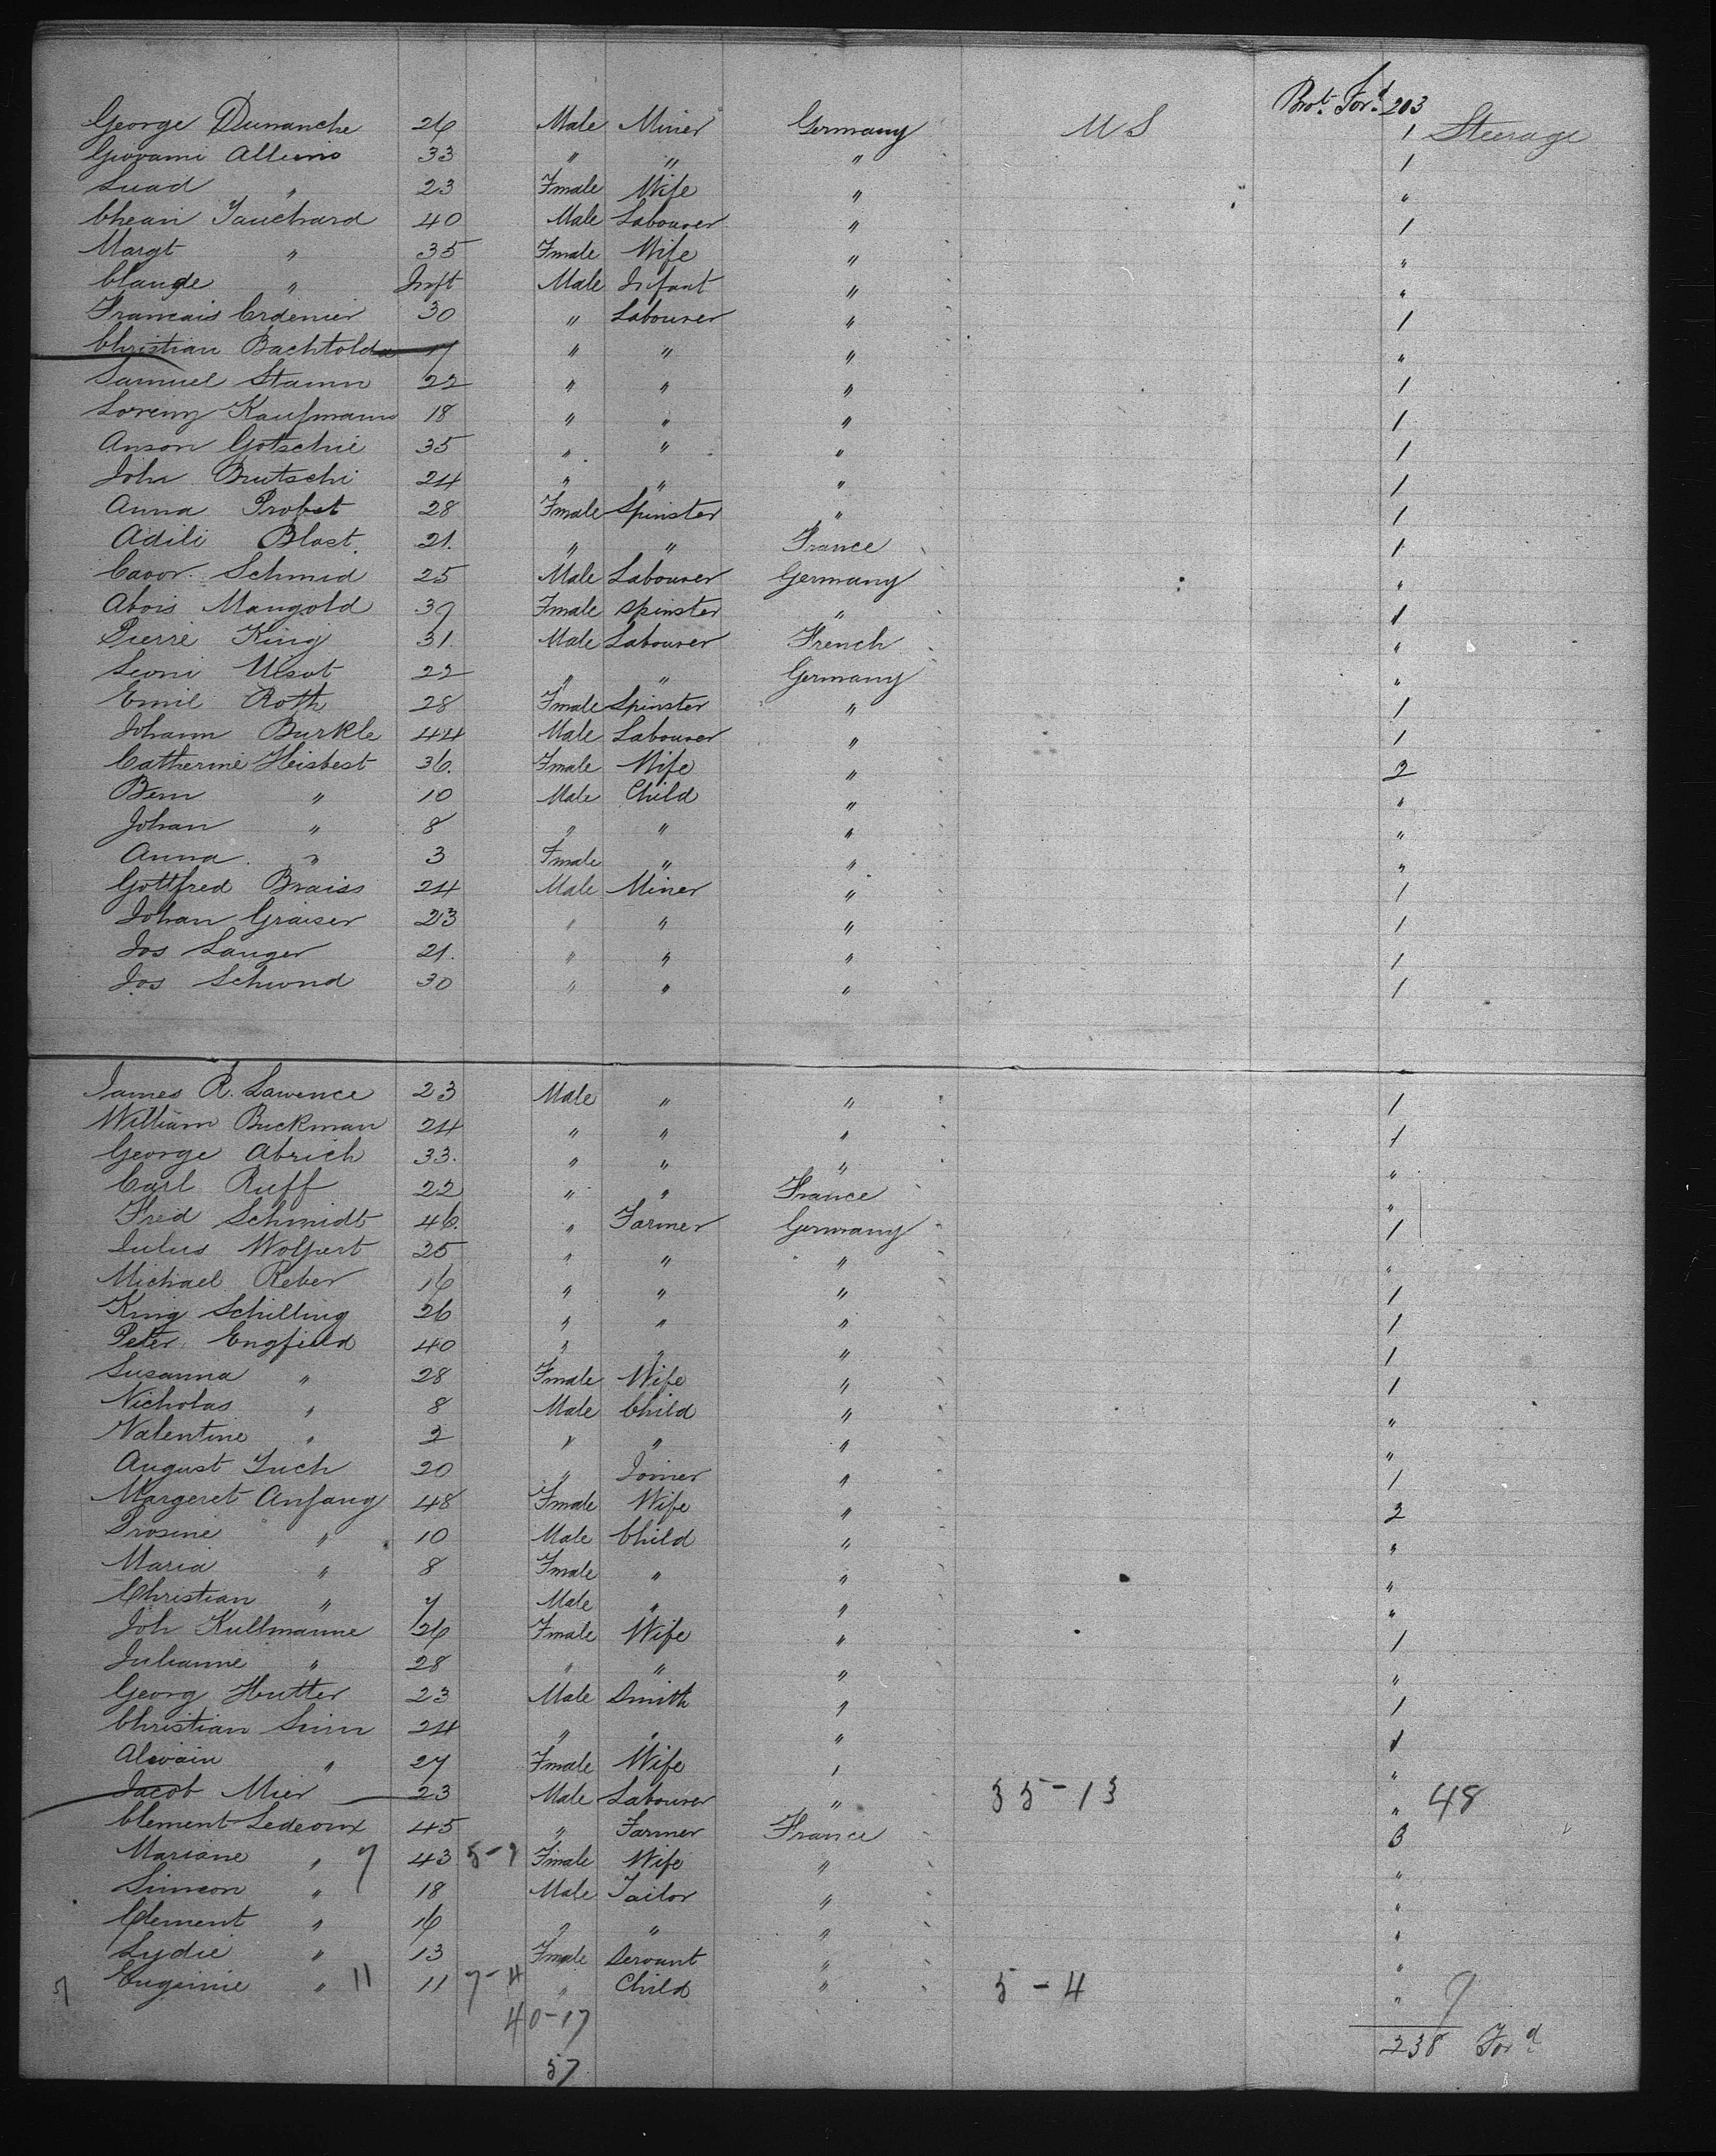 Brot. Ford. 203
George Dunanche 26 Male Miner Germany U S 1 Steerage
Giovami Allemo 33 " " " 1
Luad " 23 Fmale Wife " "
Chean Tauchard 40 Male Labourer " 1
Margt " 35 Fmale Wife " "
Claude " Inft Male Infant " "
Francais Crdenier 30 " Labourer " 1
Christian Bachtolda 17 " " " "
Samuel Stamm 22 " " " 1
Lorenz Kaufmann 18 " " " 1
Anson Gotschie 35 " " " 1
John Brutschi 24 " " " 1
Anna Probst 28 Fmale Spinster " 1
Adili Blast. 21. " " France 1
Cavor. Schmid 25 Male Labourer Germany "
Alois Mangold 37 Fmale Spinster " 1
Pierre King 31. Male Labourer French "
Leoni Ulsot 22 " " Germany "
Emil Roth 28 Fmale Spinster " 1
Johann Burkle 44 Male Labourer " 1
Catherine Heisbest 36. Fmale Wife " 2
Bern " 10 Male Child " "
Johan " 8 " " " "
Anna " 3 Fmale " " "
Gottfred Braiss 24 Male Miner " 1
Johan Graiser 23 " " " 1
Jos Langer 21. " " " 1
Jos Schwnd 30 " " " 1
James R. Lawence 23 Male " " 1
William Buckman 24 " " " 1
George Abrich 33. " " " "
Carl Ruff 22 " " France "
Fred Schmidt 46. " Farmer Germany 1
Julus Wolpert 25 " " " "
Michael Reber 16 " " " 1
King Schilling 26 " " " 1
Peter Engfield 40 " " " 1
Susanna " 28 Fmale Wife " 1
Nicholas " 8 Male Child " "
Valentine " 2 " " " "
August Tuch 20 " Joiner " 1
Margeret Anfang 48 Fmale Wife " 2
Prosine " 10 Male Child " "
Maria " 8 Fmale " " "
Christian " 7 Male " " "
Joh Kullmanne 26 Fmale Wife " 1
Julianne " 28 " " " "
Georg Hutter 23 Male Smith " 1
Christian Sinn 24 " " " 1
Alwain " 27 Fmale Wife " "
Jacob Mier 23 Male Labourer " 35-13 " 48
Clement Ledeoux 45 " Farmer France 3
Mariane " 7 43 5-9 Fmale Wife " "
Simeon " 18 Male Tailor " "
Clement " 16 " " " "
Lydie " 13 Fmale Servant " "
7 Eugeinie " 11 11 7-4 " Child " 5-4 " 9
40-17 238 Ford.
57